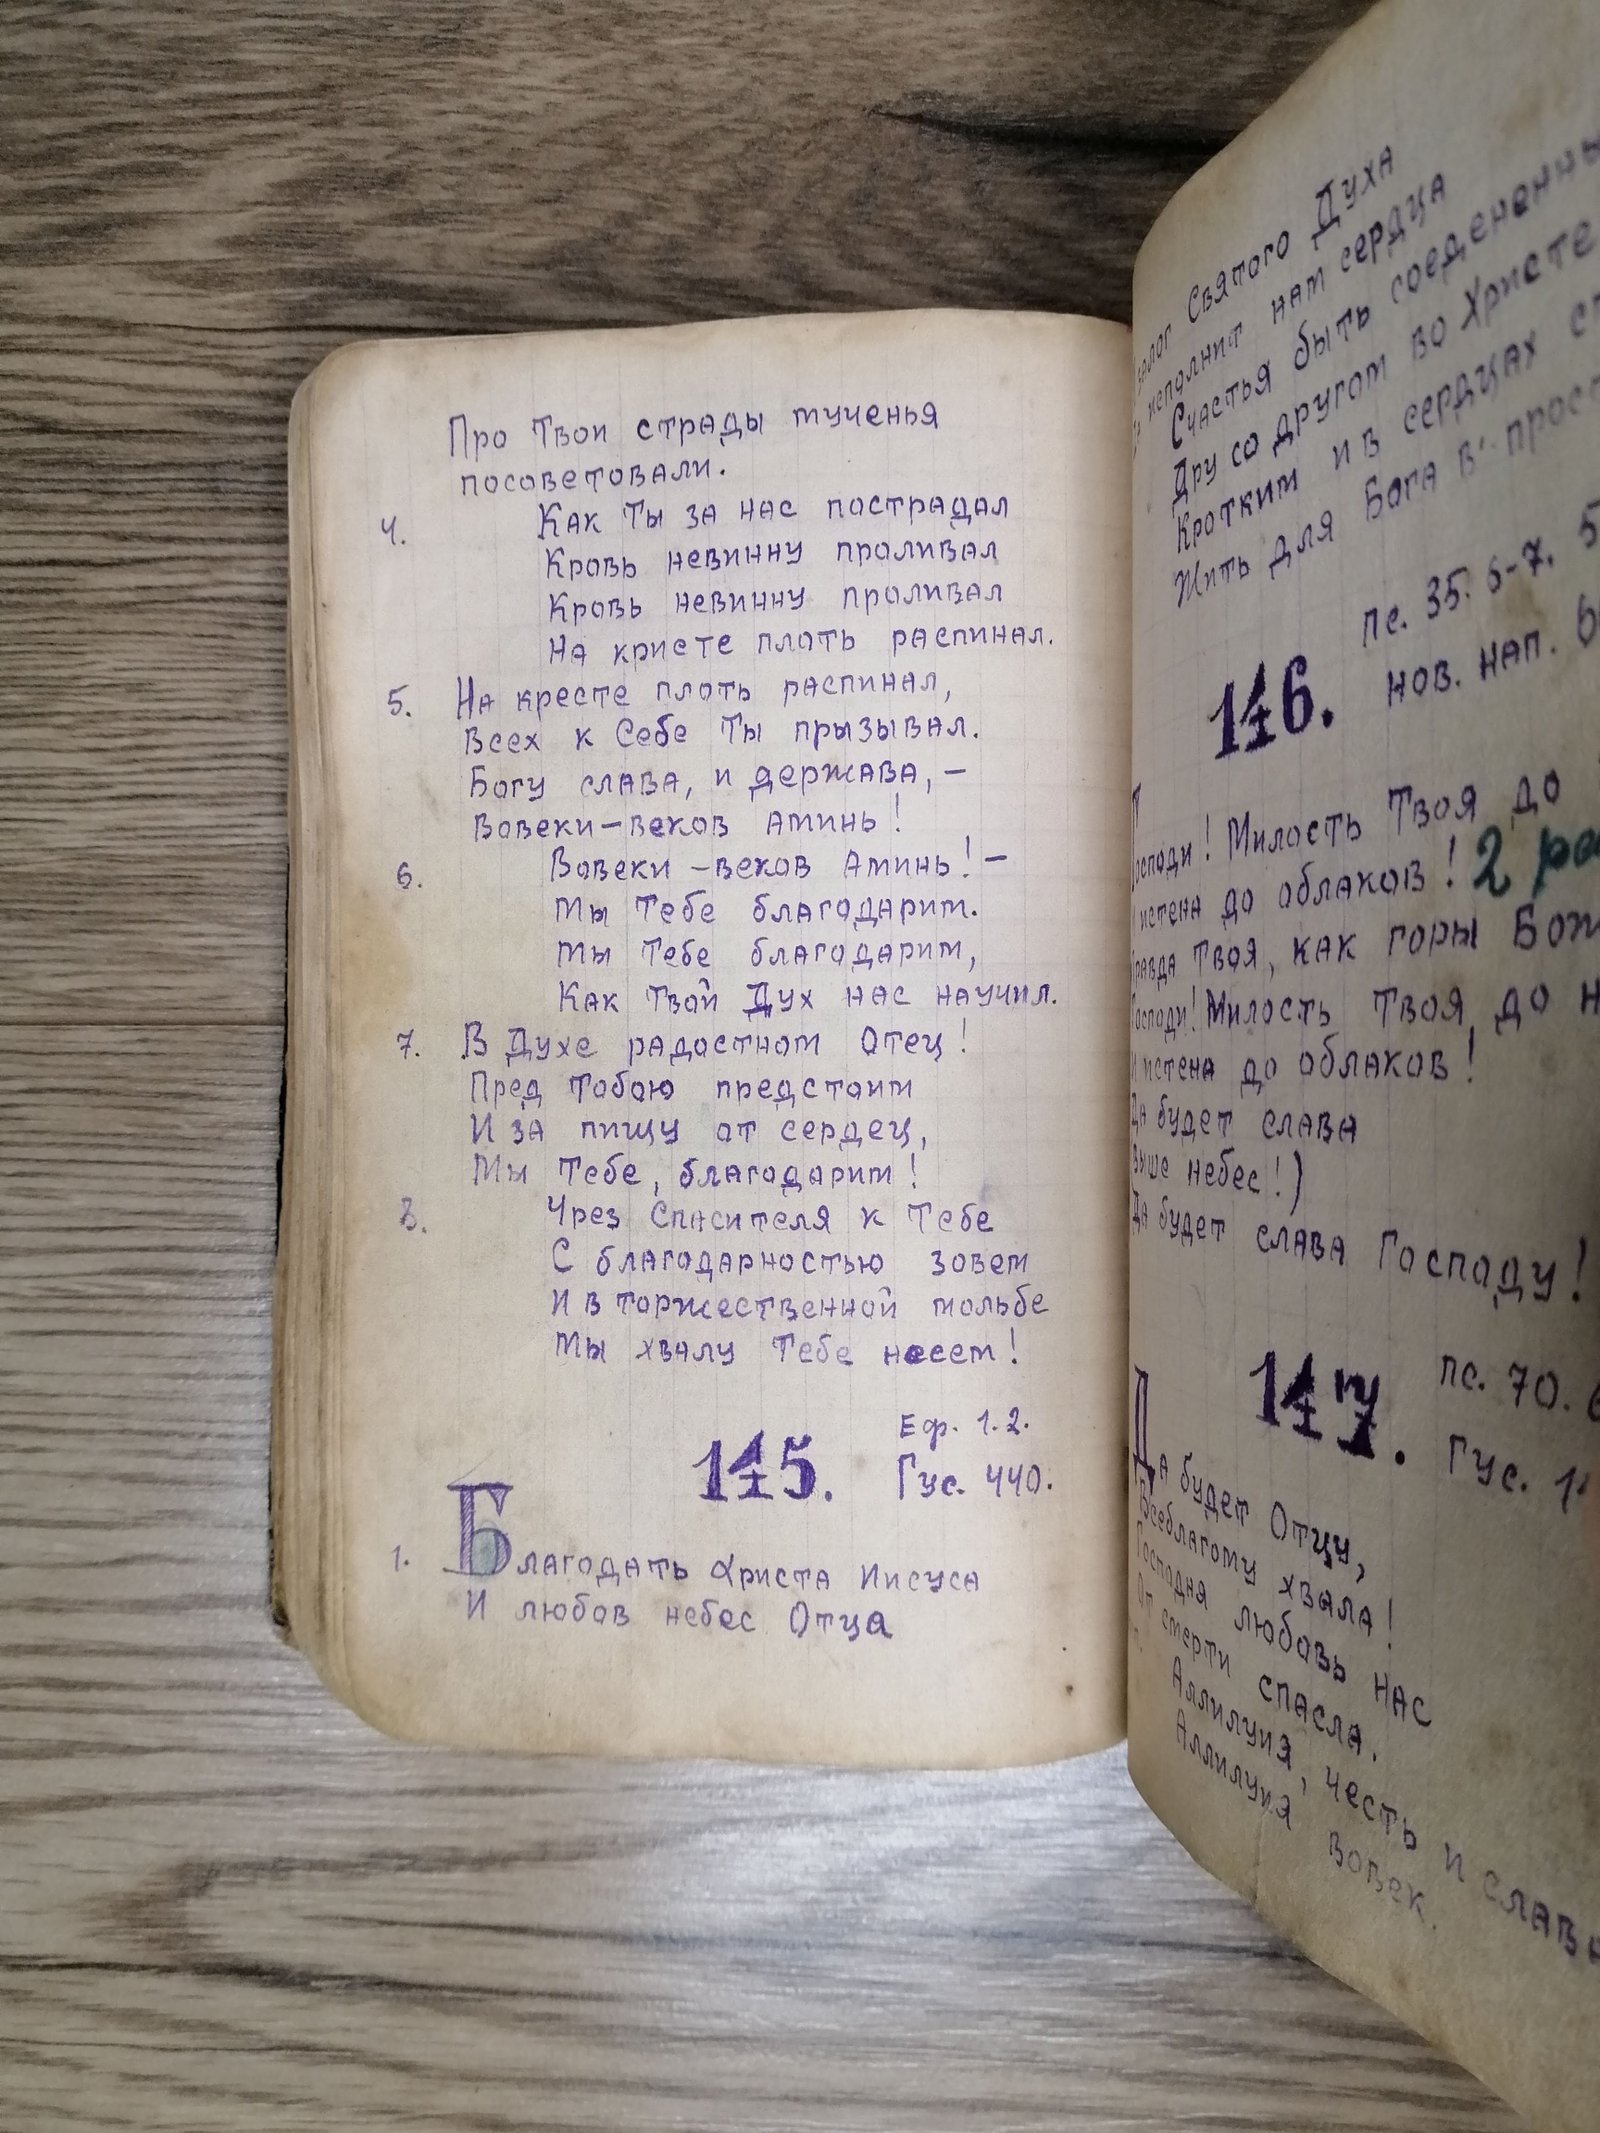 Про Твои страды мученья
посоветовали.
4. Как Ты за нас пострадал
Кровь невинну проливал
Кровь невинну проливал
На кристе плоть распинал.
5. На кресте плоть распинал,
Всех к Себе Ты прызывал.
Богу слава, и держава, –
Вовеки–веков Аминь!
6. Вовеки –веков Аминь! –
Мы Тебе благодарим.
Мы Тебе благодарим,
Как Твой Дух нас научил.
7. В Духе радостном Отец!
Пред Тобою предстоим
И за пищу от сердец,
Мы Тебе, благодарим!
8. Чрез Спасителя к Тебе
С благодарностью зовем
И в торжественной мольбе
Мы хвалу Тебе несем!
145. Еф. 1.2.
Гус. 440.
1. Благодать Христа Иисуса
И любов небес Отца
Святого Духа
исполнит нам сердца
Счастья быть соедененны
Дру со другом во Христе
Кротким и в сердцах
Жить для Бога в
146. пс. 35. 6-7.
нов. нап.
Господи! Милость Твоя до
истена до облаков! 2 ра
Правда Твоя, как горы Бож
Господи! Милость Твоя, до н
И истена до облаков!
Да будет слава
выше небес!)
Да будет слава Господу!
147. пс. 70.
Гус.
Да будет Отцу,
Всеблагому хвала!
Господня любовь нас
От смерти спасла.
Аллилуия, честь и слава
Аллилуия вовек.